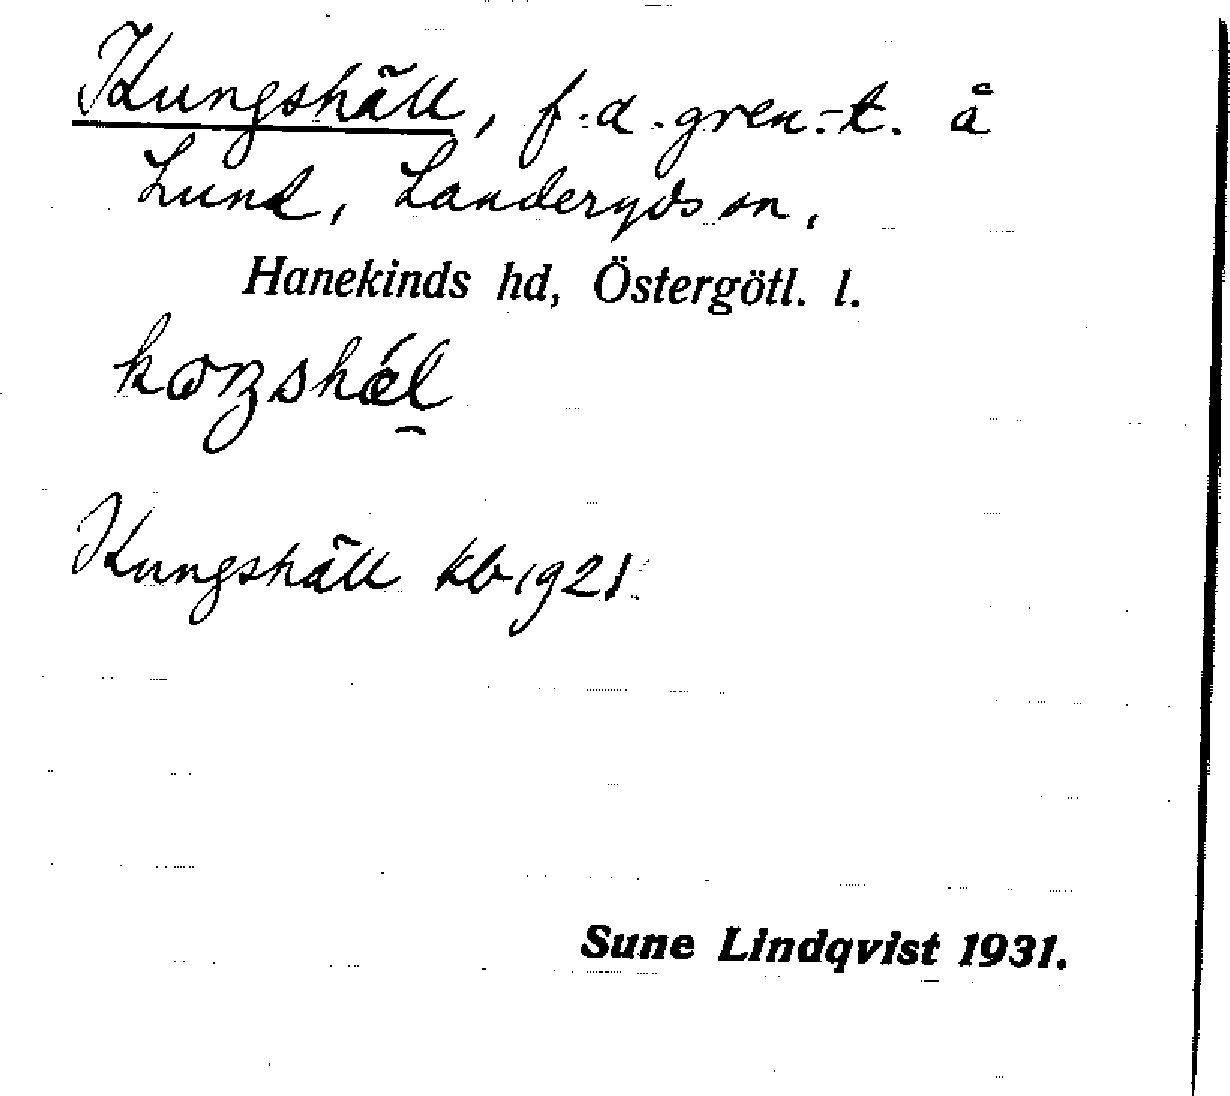 Kungshäll, f.d. gren.-t. å
Lund, Landeryds sn,
Hanekinds hd, Östergötl. l.
Kungshäll kb 1921
Sune Lindqvist 1931.